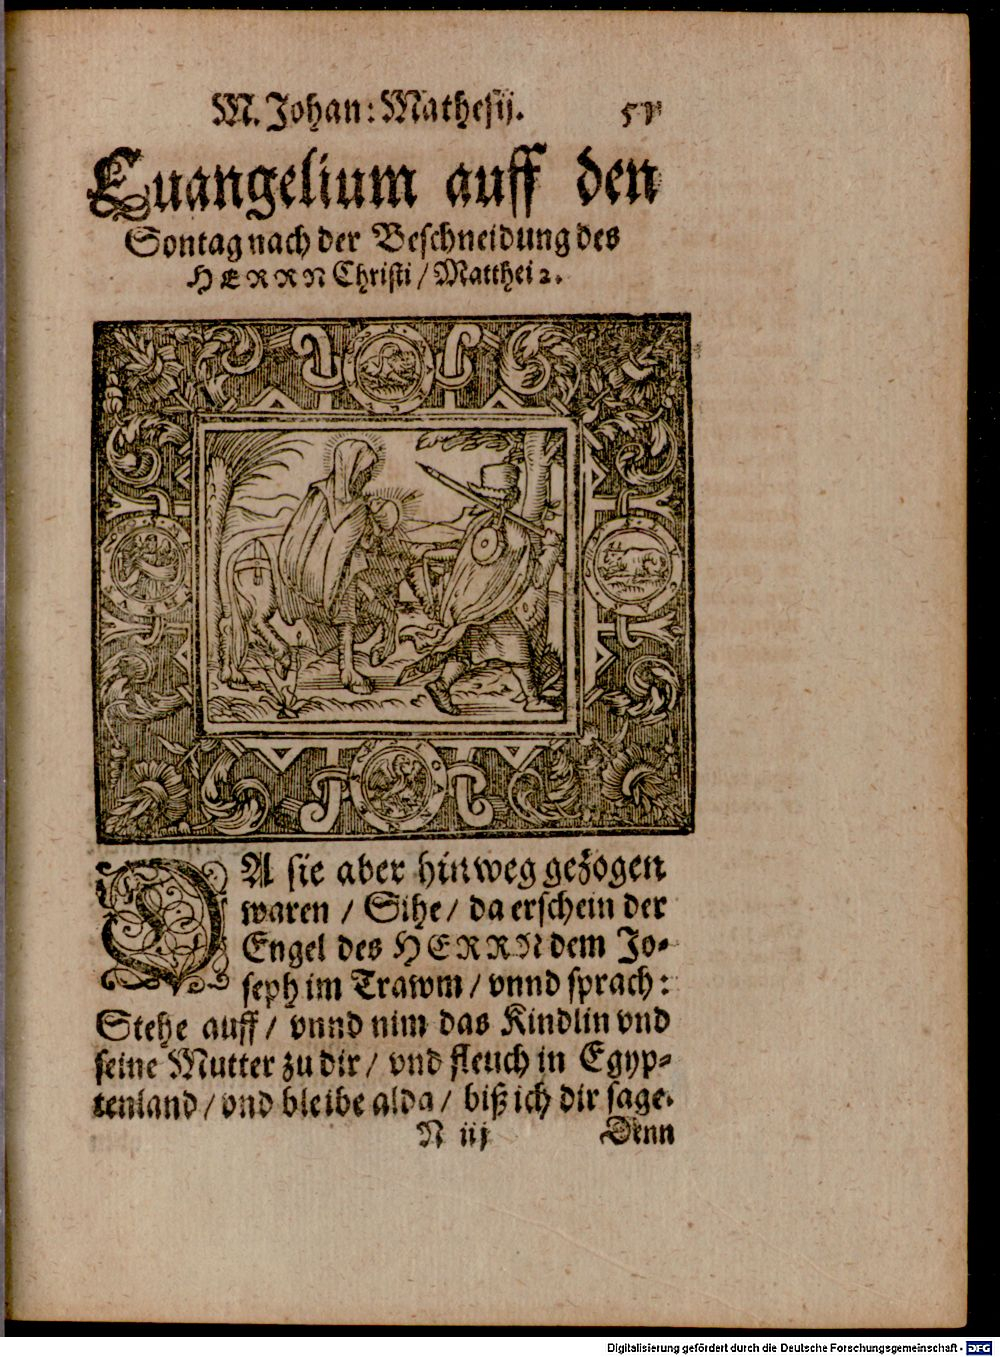 M. Johan: Mathesij.
Euangelium auff den
Sontag nach der Beschneidung des
HERRN Christi / Matthei 2.
DA sie aber hinweg gezogen
waren / Sihe / da erschein der
Engel des HERRN dem Jo-
seph im Trawm / vnnd sprach:
Stehe auff / vnnd nim das Kindlin vnd
seine Mutter zu dir / vnd fleuch in Egyp-
tenland / vnd bleibe alda / biß ich dir sage.
N iij Denn
Digitalisierung gefördert durch die Deutsche Forschungsgemeinschaft - DFG